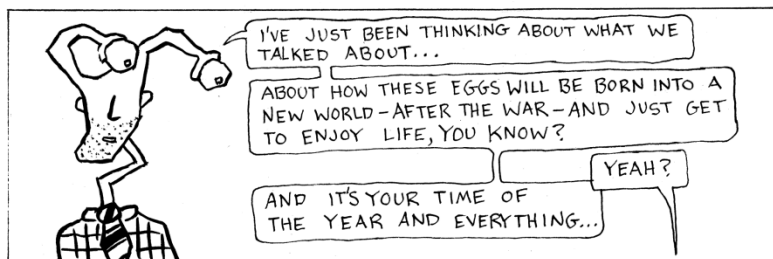 I'VE JUST BEEN THINKING ABOUT WHAT WE
TALKED ABOUT...
ABOUT HOW THESE EGGS WILL BE BORN INTO A
NEW WORLD-AFTER THE WAR-AND JUST GET
TO ENJOY LIFE, YOU KNOW?
YEAH?
AND IT'S YOUR TIME OF
THE YEAR AND EVERYTHING...